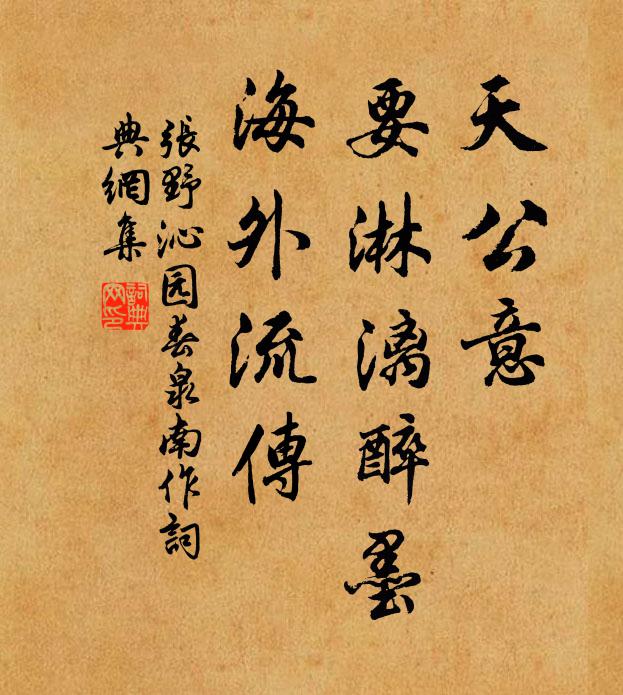 天公意
要淋漓醉墨
海外流傳
張野沁园春泉南作詞
典網集
詞典
网印